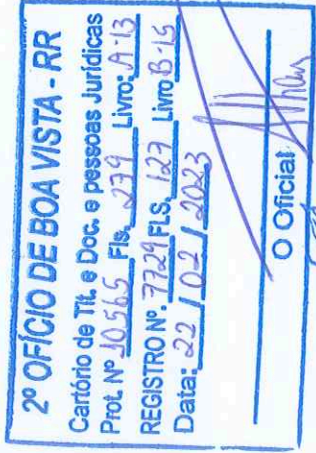 2º OFÍCIO DE BOA VISTA - RR
Cartório de Tít. e Doc. e pessoas Jurídicas
Prot. Nº 10.565 Fls. 279 Livro: A-13
REGISTRO Nº. 7729 FLS. 127 Livro B-15
Data: 22 / 02 / 2023
O Oficial